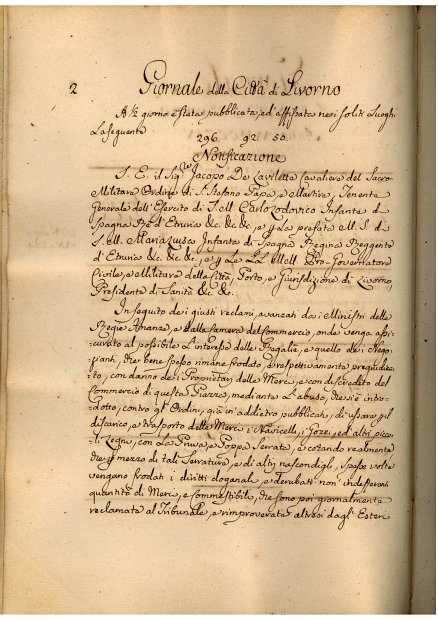 2 Giornale della Città di Livorno
A 1/2 giorno è stata pubblicata, ed affissata nei soliti Luoghi
La seguente
296 92 50
Notificazione
S. E. il Sig.re Jacopo De Laviletta Cavaliere del Sacro
Militare Ordine di S. Stefano Papa, e Martire, Tenente
Generale dell'Esercito di S. M. Carlo Lodovico Infante di
Spagna Re d'Etruria &c. &c. &c., e p la prefata M. S. d
S. M. Maria Luisa Infanta di Spagna Regina Reggente
d'Etruria &c. &c. &c., e p Le LL. MM. Pro-Governatore
Civile, e Militare della Città, Porto, e Giurisdizione di Livorno
Presidente di Sanità &c. &c.
In seguito dei giusti reclami, avanzati dai Ministri delle
Regie Finanze, e dalla Camera del Commercio, onde venga assi-
curato al possibile L'interesse delle Regalie, e quello dei Nego-
zianti, che bene spesso rimane frodato, e rispettivamente pregiudica-
to, con danno dei Proprietarj delle Merci, e con discredito del
Commercio di questa Piazza, mediante L'abuso, che si è intro-
dotto, contro gli Ordini, già in addietro pubblicati, di usare, p il
discarico, e trasporto delle Merci i Navicelli, i Gozzi, ed altri picco-
li Legni, con La Prua, e Poppa Serrate, e costando realmente
che p mezzo di tali Serrature, e di altri nascondigli, spesse volte
vengono frodati i diritti doganali, e derubati non indifferenti
quantità di Merci, e Commestibili, che sono poi giornalmente
reclamate al Tribunale, e rimproverate altresì dagl'Esteri